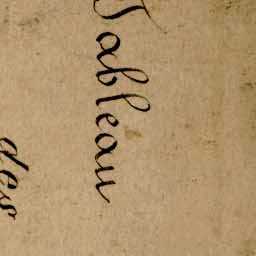 Tableau
des